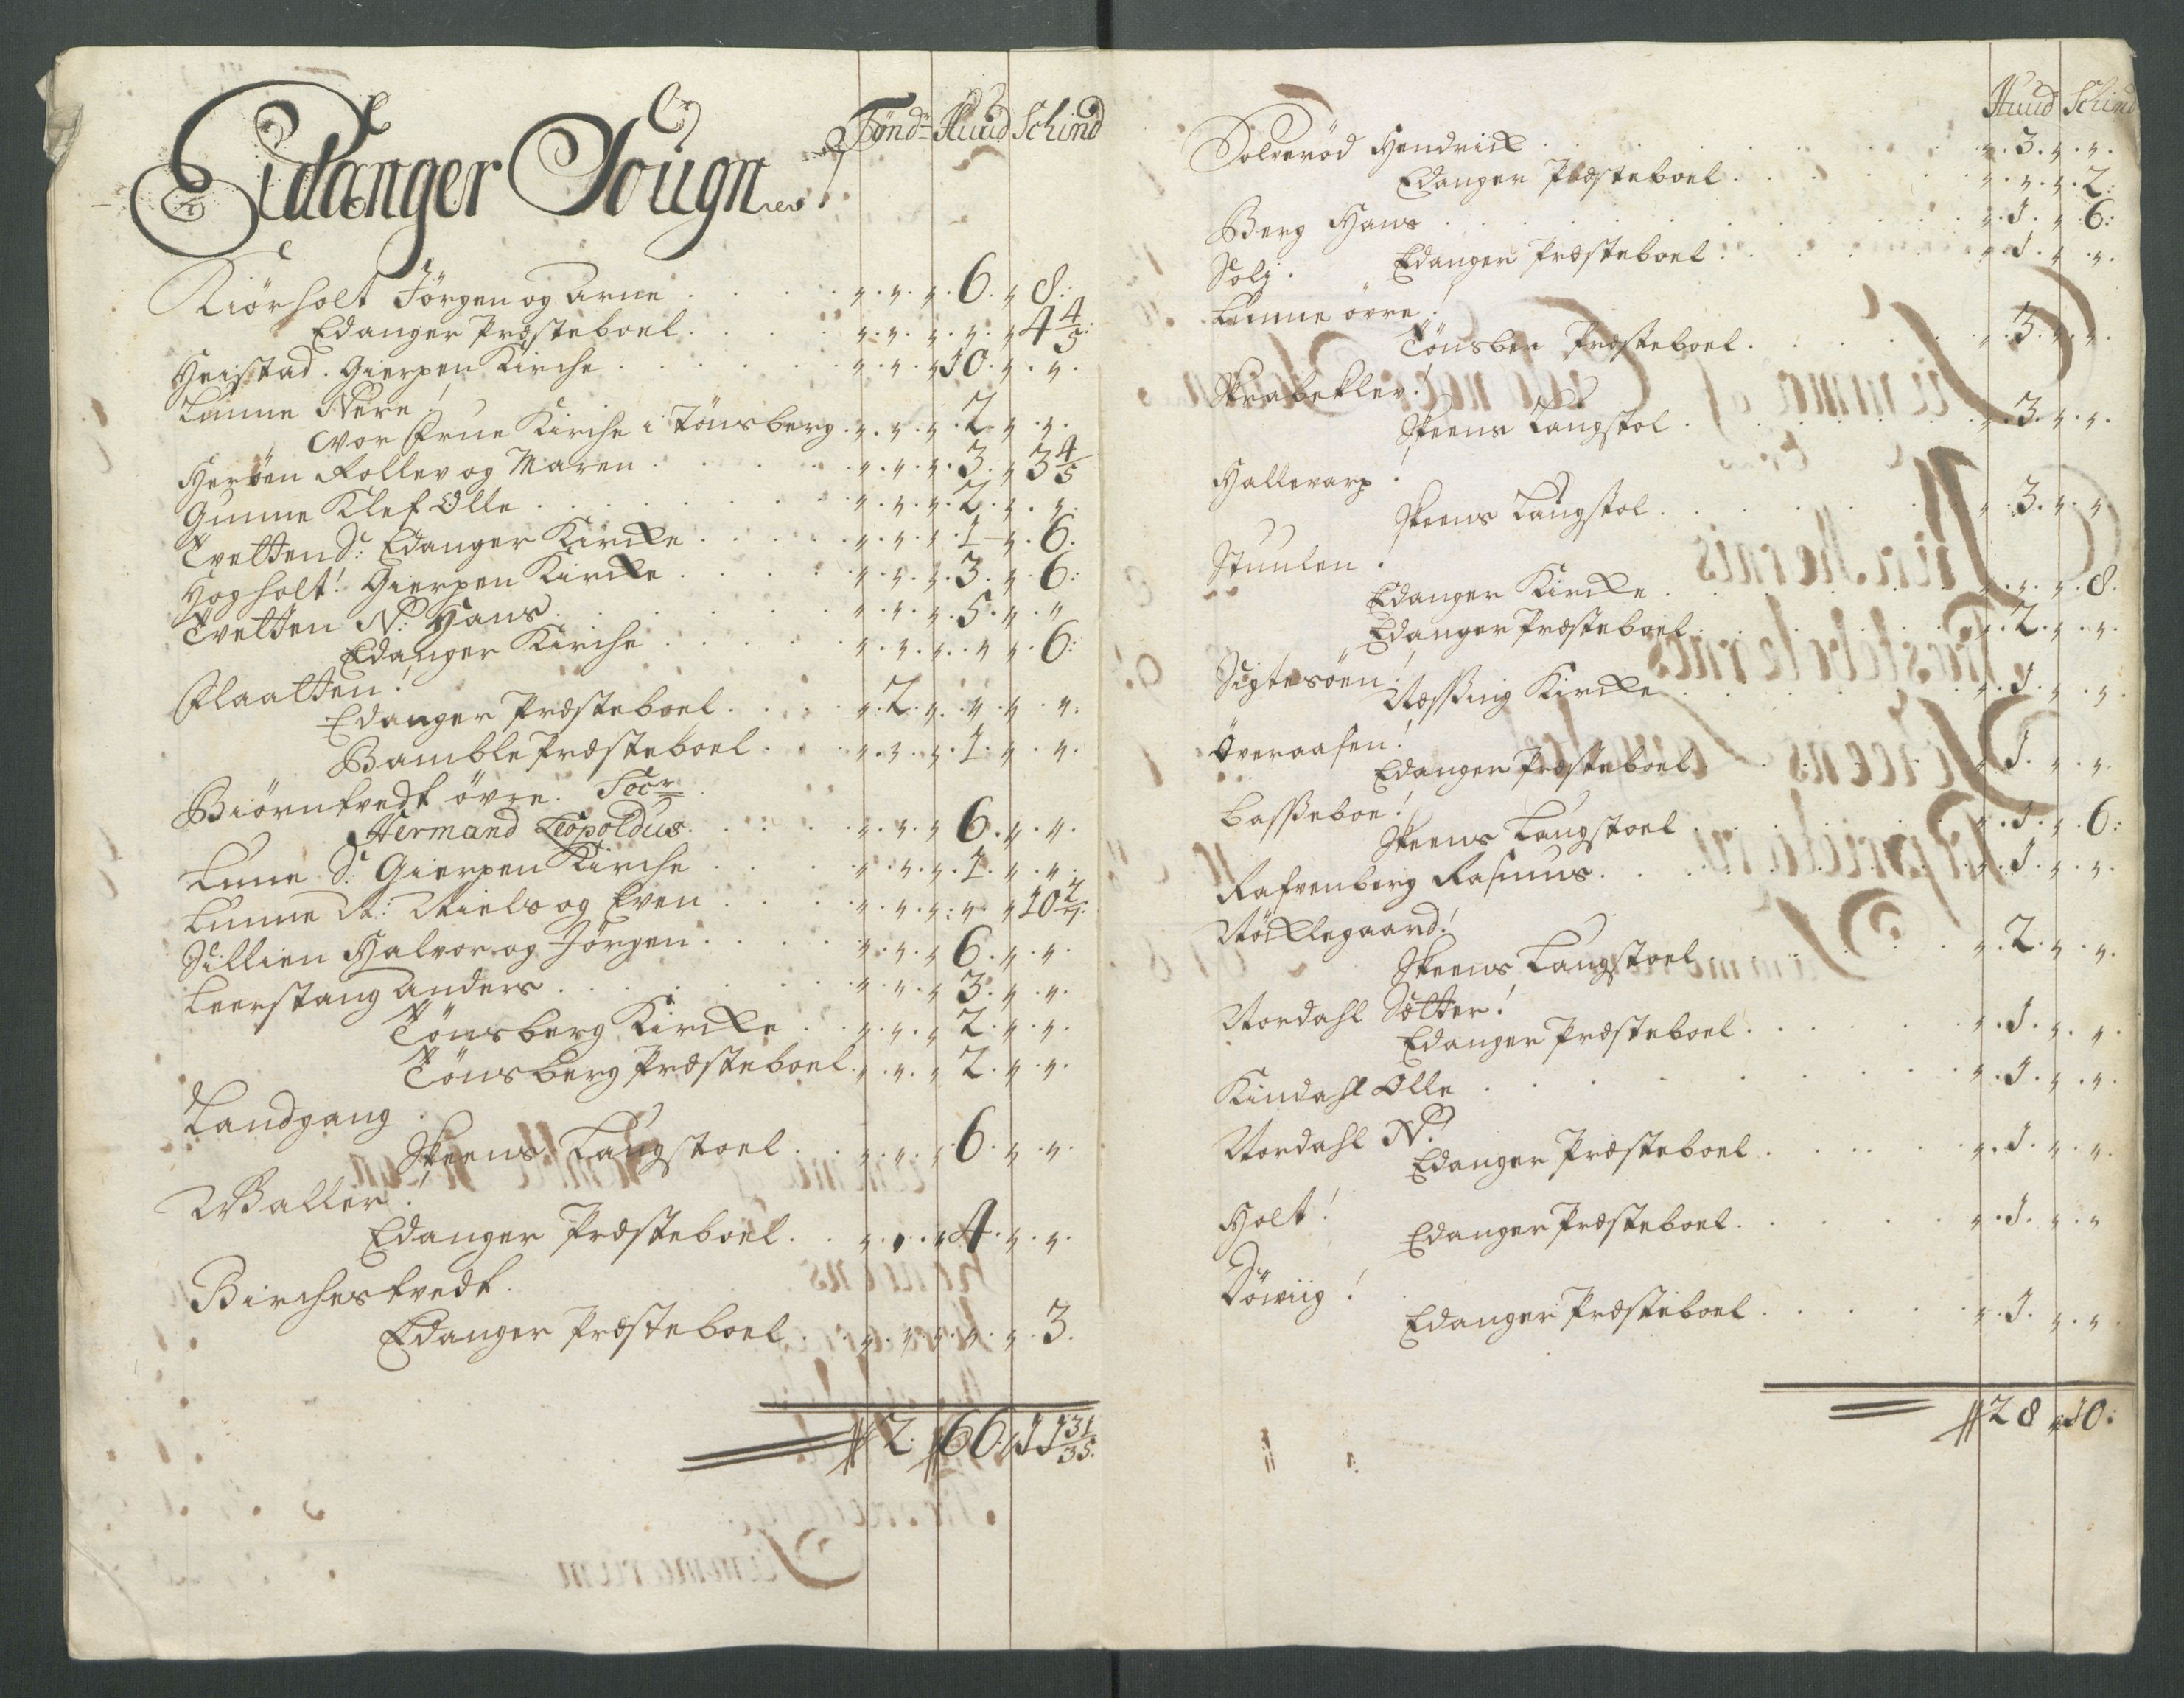 Tönd. Huud Schind
Eidanger Sougn
Kiörholt Jörgen og Arne . . . . „ . „ . „ . 6 . „ 8:
Edanger Præsteboel . . . „ . „ . „ . „ . „ 4 4/5:
Heistad. Gierpen Kirche . . . . „ . „ . „ 10 . „ . „ .
Lunne Nere!
Vor Frue Kirche i Tönsberg . „ . „ . „ . 2 . „ . „ .
Heröen Rollev og Maren . . . . „ . „ . „ . 3 . „ 3 4/5
Gunne Klef Olle . . . . „ . „ . „ . 2 . „ . „ :
Tvetten S: Edanger Kircke . . . . „ . „ . „ . 1 . „ . 6 .
Hogholt! Gierpen Kircke . . . . „ . „ . „ . 3 . „ . 6:
Tvetten N: Hans . . . . „ . „ . „ . 5 . „ . „
Edanger Kirche . . . . „ . „ . „ . „ . „ . 6:
Flaatten!
Edanger Præsteboel . . . „ . 2 . „ . „ . „ . „ :
Bamble Præsteboel . . . „ . „ . „ . 1 . „ . „ .
Biörntvedt övre. Socr
Hermand Leopoldus . . . . „ . „ . „ 6 . „ . „ .
Lunne S: Gierpen Kirche . . . „ . „ . „ . 1 . „ . „ .
Lunne N: Niels og Even . . . . „ . „ . „ : „ . „ 10 2/7:
Sillien Halvor og Jörgen . . . . „ . „ . „ 6 . „ . „ .
Leerstang Anders . . . . „ . „ . „ 3 . „ . „ .
Tönsberg Kircke . . „ . „ . „ 2 . „ . „ .
Tönsberg Præsteboel . „ . „ . „ 2 . „ . „ .
Landgang .
Skeens Laugstoel . . „ . „ . „ . 6 . „ . „ .
Waller!
Edanger Præsteboel . . „ . „ . „ 4 . „ . „ .
Birchestvedt .
Edanger Præsteboel . . „ . „ . „ . „ . „ . 3 .
2: 66: 11 31/35.
Huud Schind
Solverød Hendrick . . . . „ . 3 . „ . „ .
Edanger Præsteboel . . . . „ . „ . „ . 2:
Berg Hans . . . . „ . 1 . „ . 6:
Soli . Edanger Præsteboel . . . . „ . 1 . „ . „ .
Lunne övre!
Tönsber Præsteboel . . . . „ . 3 . „ . „ .
Skrabeklev!
Skeens Laugstol . . . . „ . 3 . „ . „ .
Hallevarp!
Skeens Laugstol . . . . „ . 3 . „ . „ .
Stuulen!
Edanger Kircke . . . . „ . „ . „ . 8 .
Edanger Præsteboel . . . . „ . 2 . „ . „ .
Sigtesöen!
Næssing Kircke . . . . „ . 1 . „ . „ .
Överaasen!
Edanger Præsteboel . . . . „ . 1 . „ . „ .
Lasseboe!
Skeens Laugstoel . . . . „ . 1 . „ . 6:
Rafvenberg Rasmus . . . . „ . 1 . „ . „ .
Nöcklegaard!
Skeens Laugstoel . . . . „ . 2 . „ . „ .
Nordahl Sætter!
Edanger Præsteboel . . . . „ . 1 . „ . „ .
Kindahl Olle . . . . „ . 1 . „ . „ .
Nordahl N!
Edanger Præsteboel . . . . „ . 1 . „ . „ .
Holt!
Edanger Præsteboel . . . . „ . 1 . „ . „
Döwiig!
Edanger Præsteboel . . . . „ . 1 . „ . „
28 „ 10: